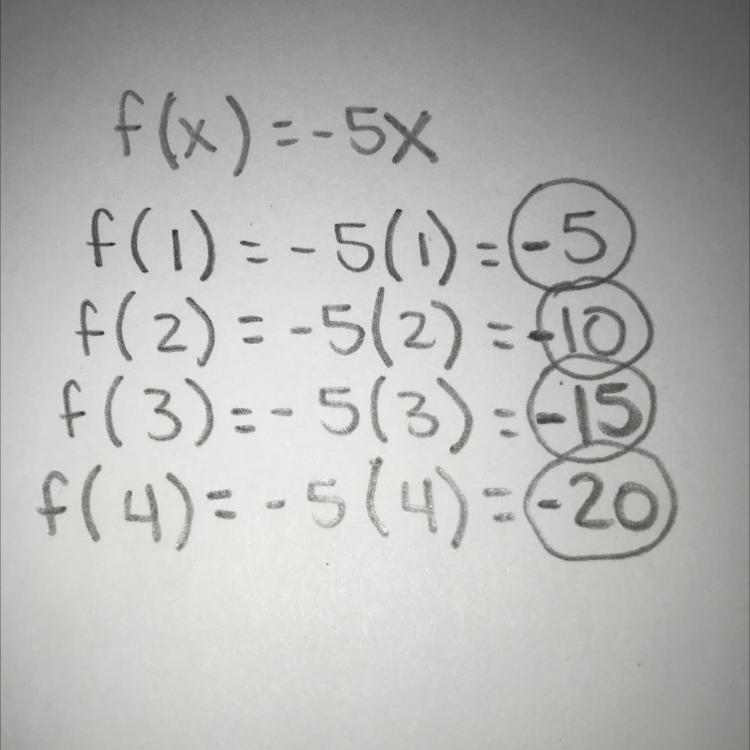 f(x) = -5x
f(1) = -5(1) = -5
f(2) = -5(2) = -10
f(3) = -5(3) = -15
f(4) = -5(4) = -20